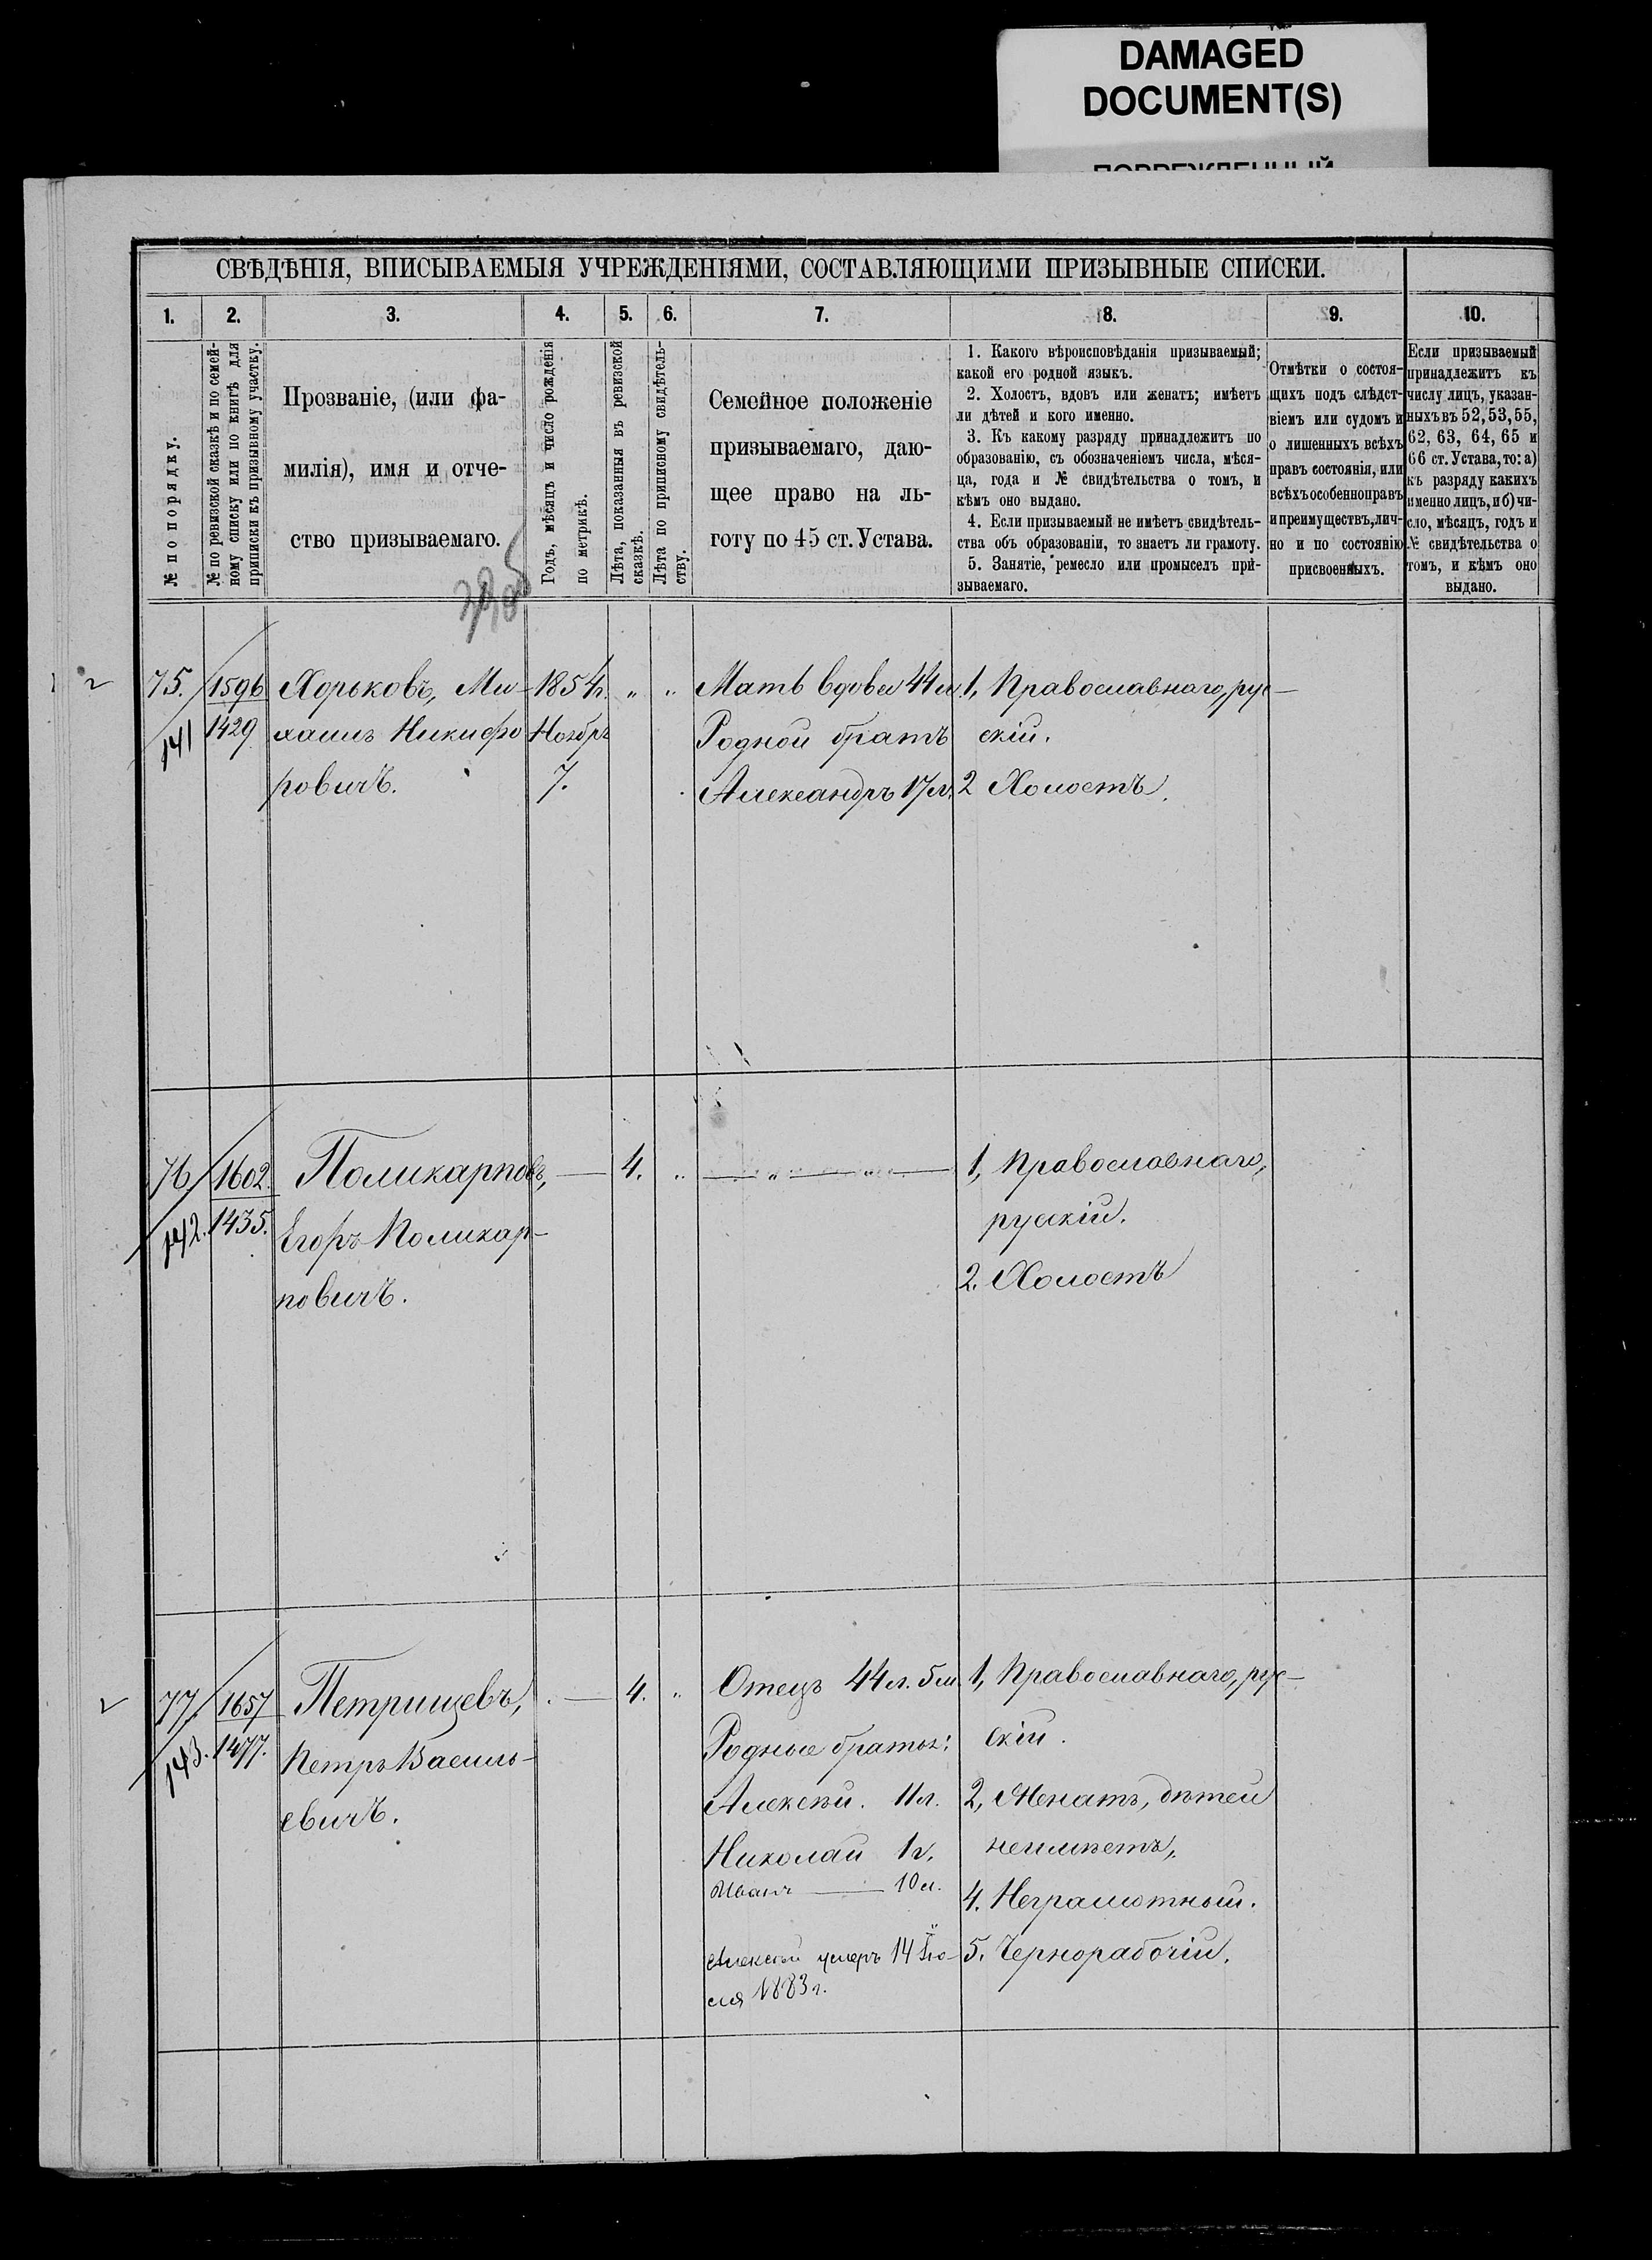 DAMAGED
DOCUMENT(S)
ПОВРЕЖДЕННЫЙ
СВѢДѢНІЯ, ВПИСЫВАЕМЫЯ УЧРЕЖДЕНІЯМИ, СОСТАВЛЯЮЩИМИ ПРИЗЫВНЫЕ СПИСКИ.
1. 2. 3. 4. 5. 6. 7. 8. 9. 10.
№ по порядку.
№ по ревизской сказкѣ и по семей-
ному списку или по книгѣ для
приписки къ призывному участку.
Прозваніе, (или фа-
милія), имя и отче-
ство призываемаго.
Годъ, мѣсяцъ и число рожденія
по метрикѣ.
Лѣта, показанныя въ ревизской
сказкѣ.
Лѣта по приписному свидѣтель-
ству.
Семейное положеніе
призываемаго, даю-
щее право на ль-
готу по 45 ст. Устава.
1. Какого вѣроисповѣданія призываемый;
какой его родной языкъ.
2. Холостъ, вдовъ или женатъ; имѣетъ
ли дѣтей и кого именно.
3. Къ какому разряду принадлежитъ по
образованію, съ обозначеніемъ числа, мѣся-
ца, года и № свидѣтельства о томъ, и
кѣмъ оно выдано.
4. Если призываемый не имѣетъ свидѣтель-
ства объ образованіи, то знаетъ ли грамоту.
5. Занятіе, ремесло или промыселъ при-
зываемаго.
Отмѣтки о состоя-
щихъ подъ слѣдст-
віемъ или судомъ и
о лишенныхъ всѣхъ
правъ состоянія, или
всѣхъ особенно правъ
и преимуществъ, лич-
но и по состоянію
присвоенныхъ.
Если призываемый
принадлежитъ къ
числу лицъ, указан-
ныхъ въ 52, 53, 55,
62, 63, 64, 65 и
66 ст. Устава, то: а)
къ разряду какихъ
именно лицъ, и б) чи-
сло, мѣсяцъ, годъ и
№ свидѣтельства о
томъ, и кѣмъ оно
выдано.
75.
141
1596
1429
Хорьковъ, Ми-
хаилъ Никифо
ровичъ.
1854г.
Ноябрь
7.
„
„
Мать вдова 44 л.
Родной братъ
Александръ 17 л.
1, Православнаго, рус-
скій.
2 Холостъ.
76
142.
1602.
1435.
Поликарповъ,
Егоръ Поликар-
повичъ.
—
4.
„
— „ — „ —
1, Православнаго,
русскій.
2. Холостъ
77
143.
1657
1477.
Петрищевъ,
Петръ Василь-
евичъ.
—
4.
„
Отецъ 44 л. 5 м
Родные братья:
Алексѣй. 11 л.
Николай 1 г.
Иванъ — 10 л.
Алексѣй умеръ 14 Ію-
ля 1883 г.
1, Православнаго, рус-
скій.
2, Женатъ, дѣтей
неимѣетъ,
4. Неграмотный.
5. Чернорабочій.